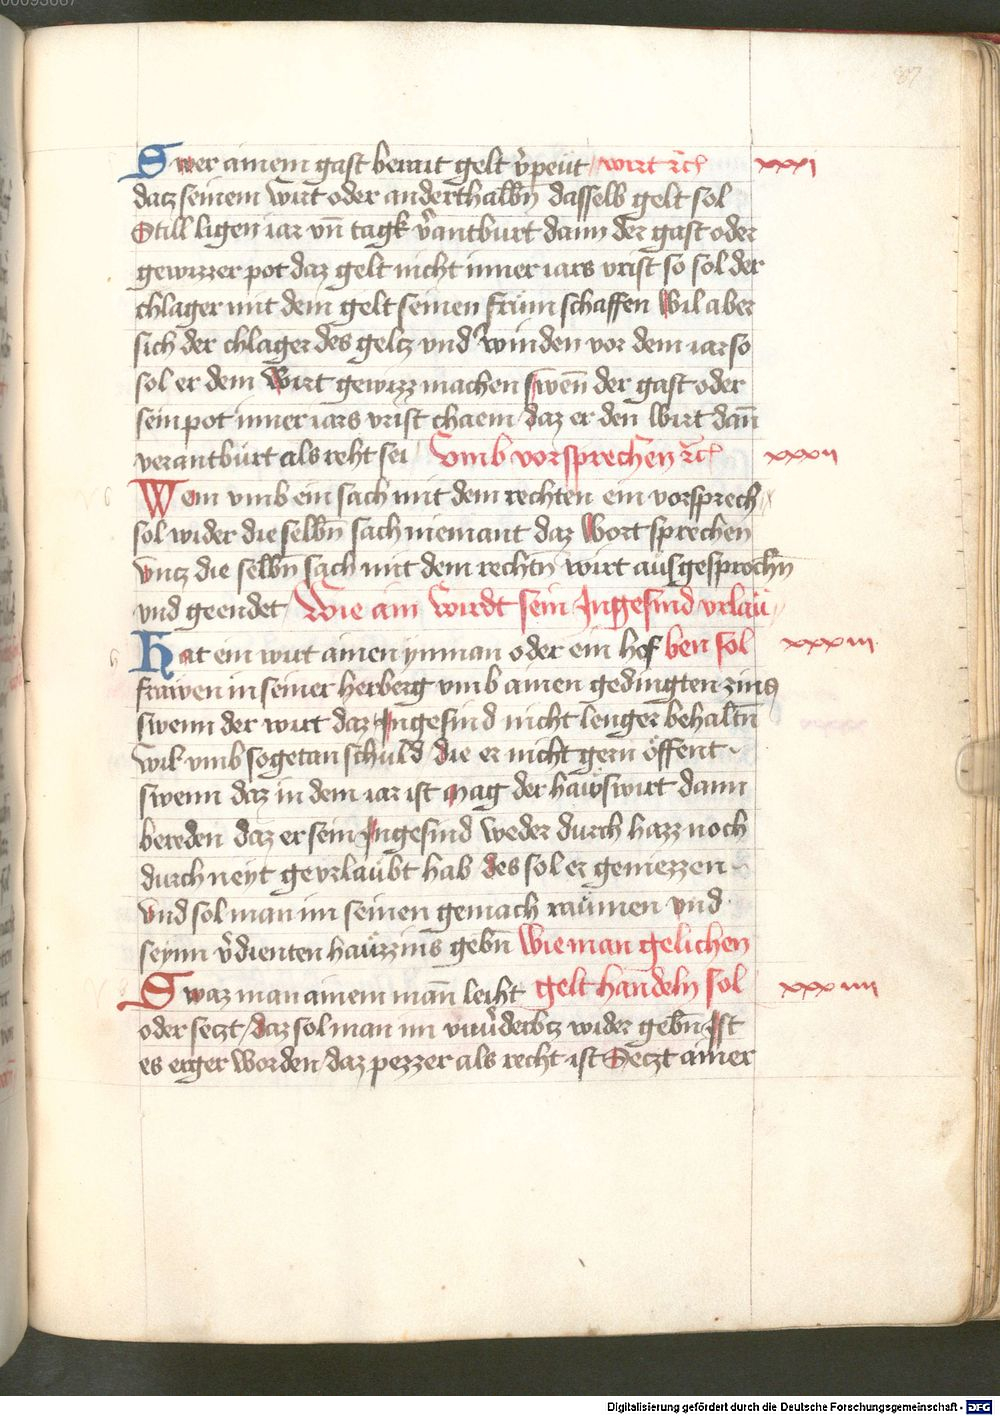 87
Swer ainem gast berait gelt v̉peüt wirt ꝛcͣ xxxi
datz seinem wirt oder anderthalbn̄ dasselb gelt sol
Still ligen iar vn̄ tagk v̉antburt dann der gast oder
gewizzer pot daz gelt nicht inner iars vrist so sol der
chlager mit dem gelt seinen frum schaffen Wil aber
sich der chlager des geltz vnd̉winden vor dem iar so
sol er dem Wirt gewizz machen swen̄ der gast oder
sein pot inner iars vrist chaem daz er den Wirt dan̄
verantbürt als reht sei Vmb vorsprechen ꝛcͣ xxxii
Wem vmb ein sach mit dem rechten ein vorsprech
sol wider die selbn̄ sach niemant daz Wort sprechen
vntz die selbn̄ sach mit dem rechtn̄ wirt ausgesprochn̄
vnd geendet Wie ain Wirdt sein Ingesind vrlaü
Hat ein wirt ainen ynman oder ein hof ben sol xxxiii
frawen in seiner herberg vmb ainen gedingten zins
swenn der wirt daz Ingesind nicht lenger behaltn̄
wil vmb sogetan schuld die er nicht gern öffent
swenn daz in dem iar ist mag der hawswirt dann
bereden daz er sein Ingesind weder durch hazz noch
durch neyt gevrlaübt hab des sol er geniezzen
vnd sol man im seinen gemach raümen vnd
seynn v̉dienten haüzzins gebn̄ Wie man gelichen
Swaz man ainem man̄ leiht gelt handeln sol xxxiiii
oder setzt daz sol man im vnv̉derbtz wider gebn̄ Ist
es erger Worden daz pezzer als recht ist Setzt ainer
Digitalisierung gefördert durch die Deutsche Forschungsgemeinschaft - DFG